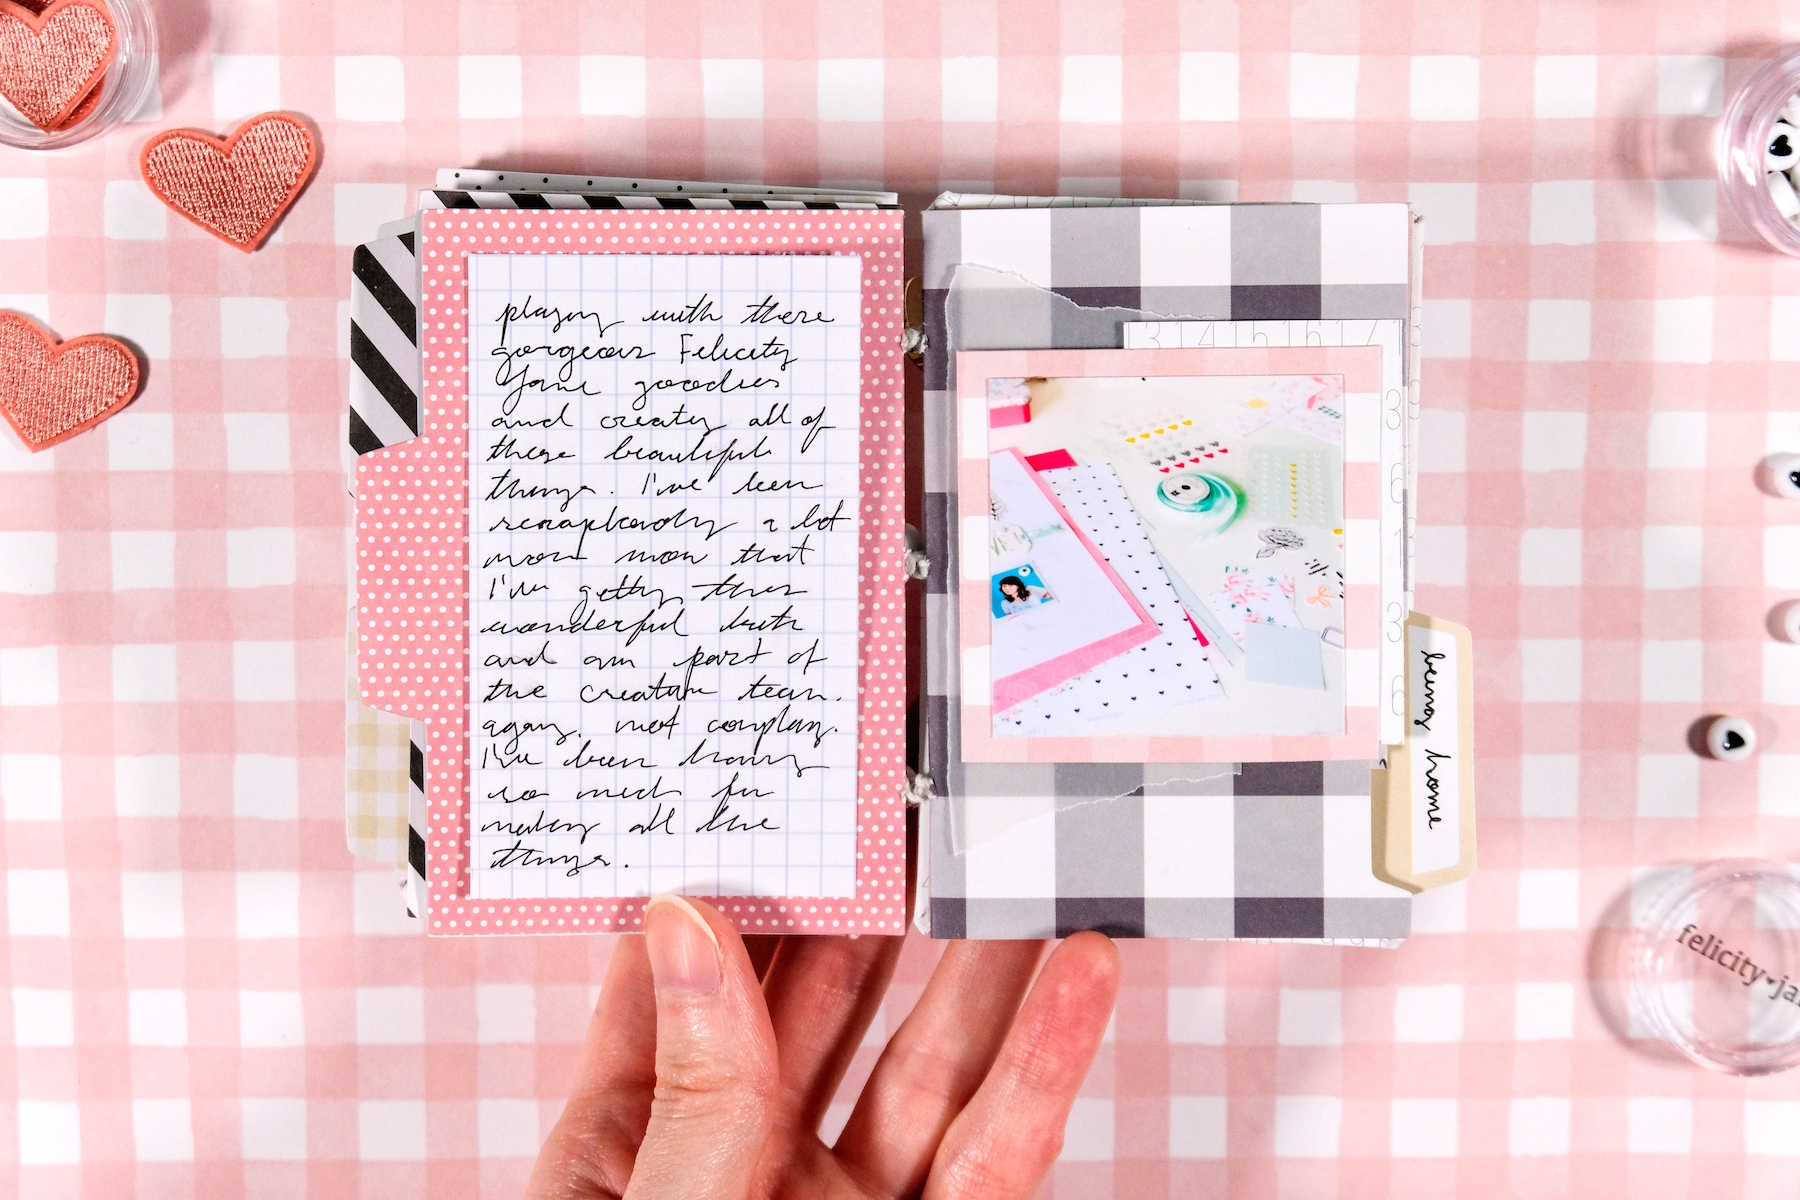 playing with these
gorgeous Felicity
Jane goodies
and creating all of
these beautiful
things. I've been
scrapbooking a lot
more now that
I'm getting these
wonderful kits
and am part of
the creative team.
again, not complaining.
I've been having
so much fun
making all the
things.
314151617
3
6
1
3
6
being home
felicity♥ja